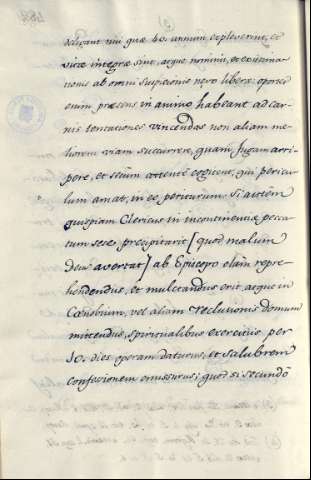 deligant nisi quæ 40. annum expleverint, et
vitæ integræ sint, æque nominis, et existima-
tionis ab omni suspicione nevo liberæ: oportet
enim præ oculis in animo habeant ad car-
nis tentationes vincendas non aliam me-
liorem viam succurrere, quam fugam arri-
pere, et secum attente cogitent, qui pericu-
lum amat, in eo periturum. Si autem
quispiam Clericus in incontinentiæ pecca-
tum sese precipitarit [quod malum
Deus avertat] ab Episcopo clam repre-
hendendus, et mulctandus erit, æque in
Cœnobium, vel aliam reclusionis domum
mittendus, spiritualibus exercitiis per
10. dies operam daturus, et salubrem
confessionem emissurus; quod si secundò